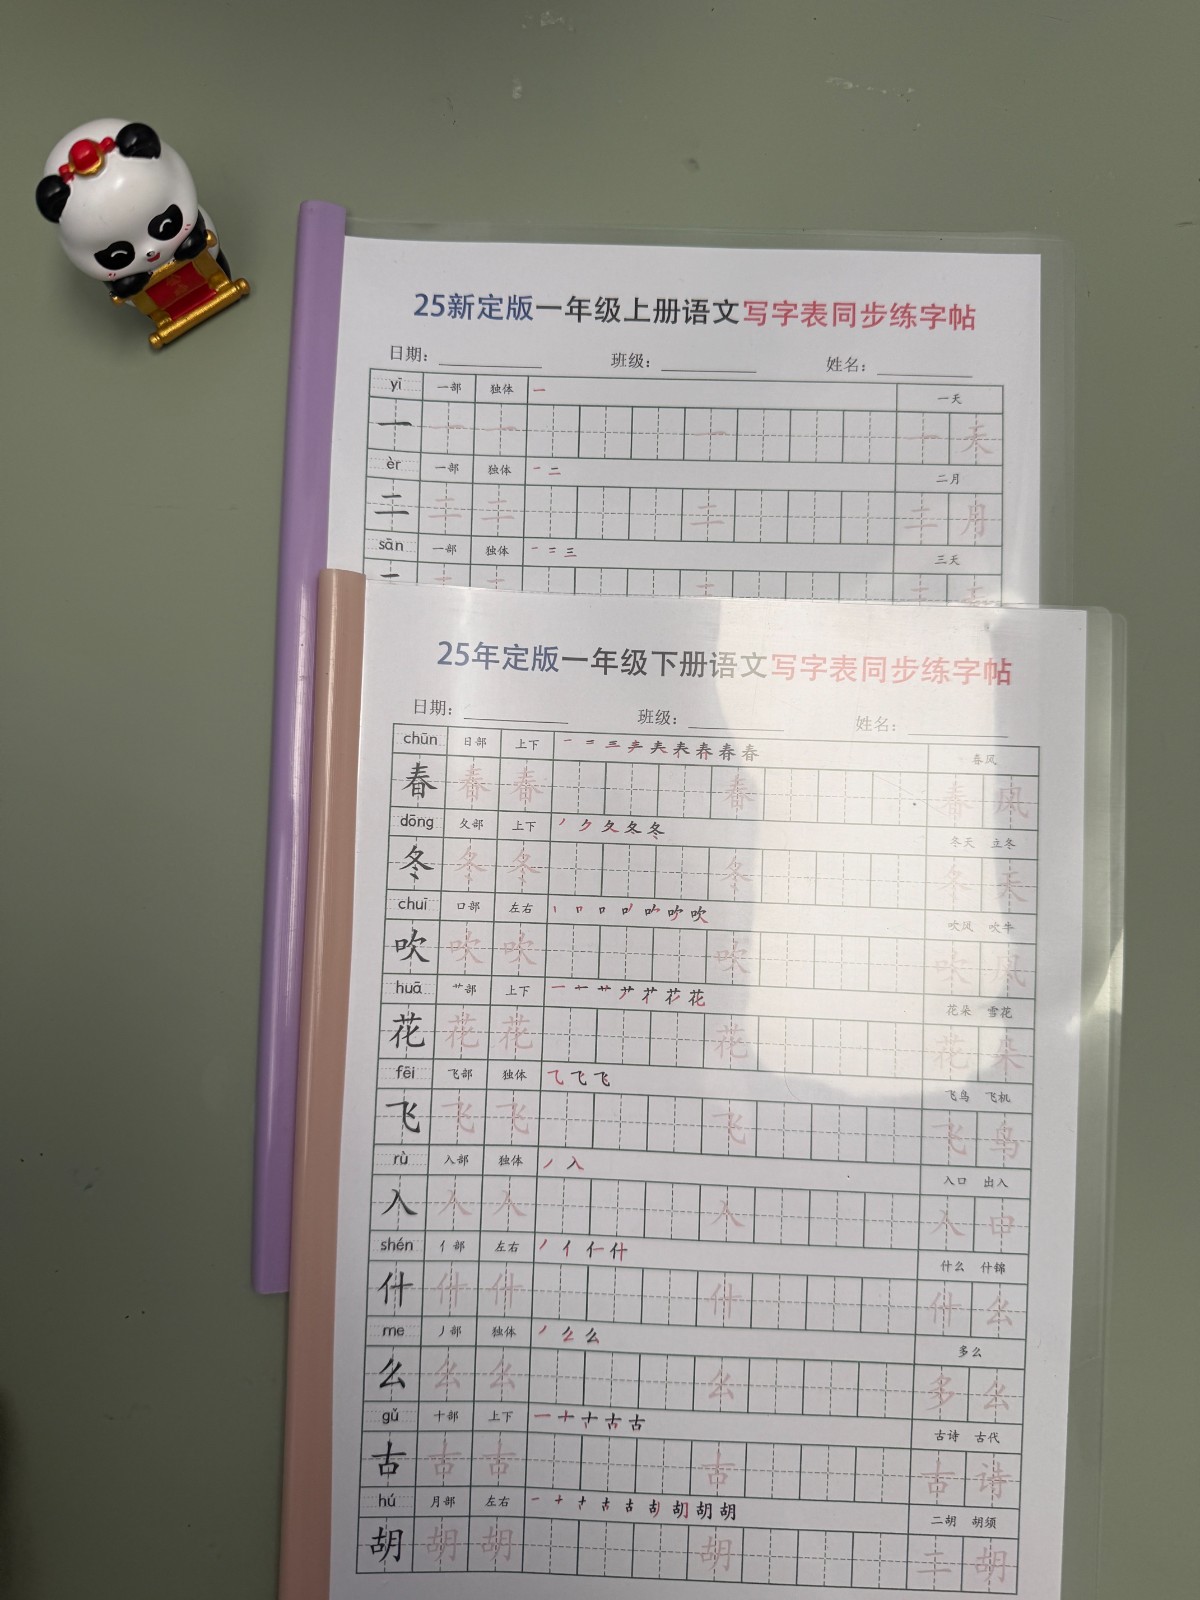 25新定版一年级上册语文写字表同步练字帖
日期： 班级： 姓名：
yī 一部 独体 一 一天
一 一 一 一 一 天
èr 一部 独体 一 二 二月
二 二 二 二 二 月
sān 一部 独体 一 二 三 三天
25年定版一年级下册语文写字表同步练字帖
日期： 班级： 姓名：
chūn 日部 上下 一 二 三 春 春风
春 春 春 春 春 风
dōng 夂部 上下 丿 ク 夂 冬 冬 冬天 立冬
冬 冬 冬 冬 冬 天
chuī 口部 左右 丨 口 口 吹 吹风 吹牛
吹 吹 吹 吹 吹 风
huā 艹部 上下 一 十 艹 花 花朵 雪花
花 花 花 花 花 朵
fēi 飞部 独体 乁 飞 飞 飞鸟 飞机
飞 飞 飞 飞 飞 鸟
rù 入部 独体 丿 入 入口 出入
入 入 入 入 入 口
shén 亻部 左右 丿 亻 仁 什 什么 什锦
什 什 什 什 什 么
me 丿部 独体 丿 么 么 多么
么 么 么 么 多 么
gǔ 十部 上下 一 十 古 古 古诗 古代
古 古 古 古 古 诗
hú 月部 左右 一 十 古 古 胡 胡 胡 二胡 胡须
胡 胡 胡 胡 二 胡